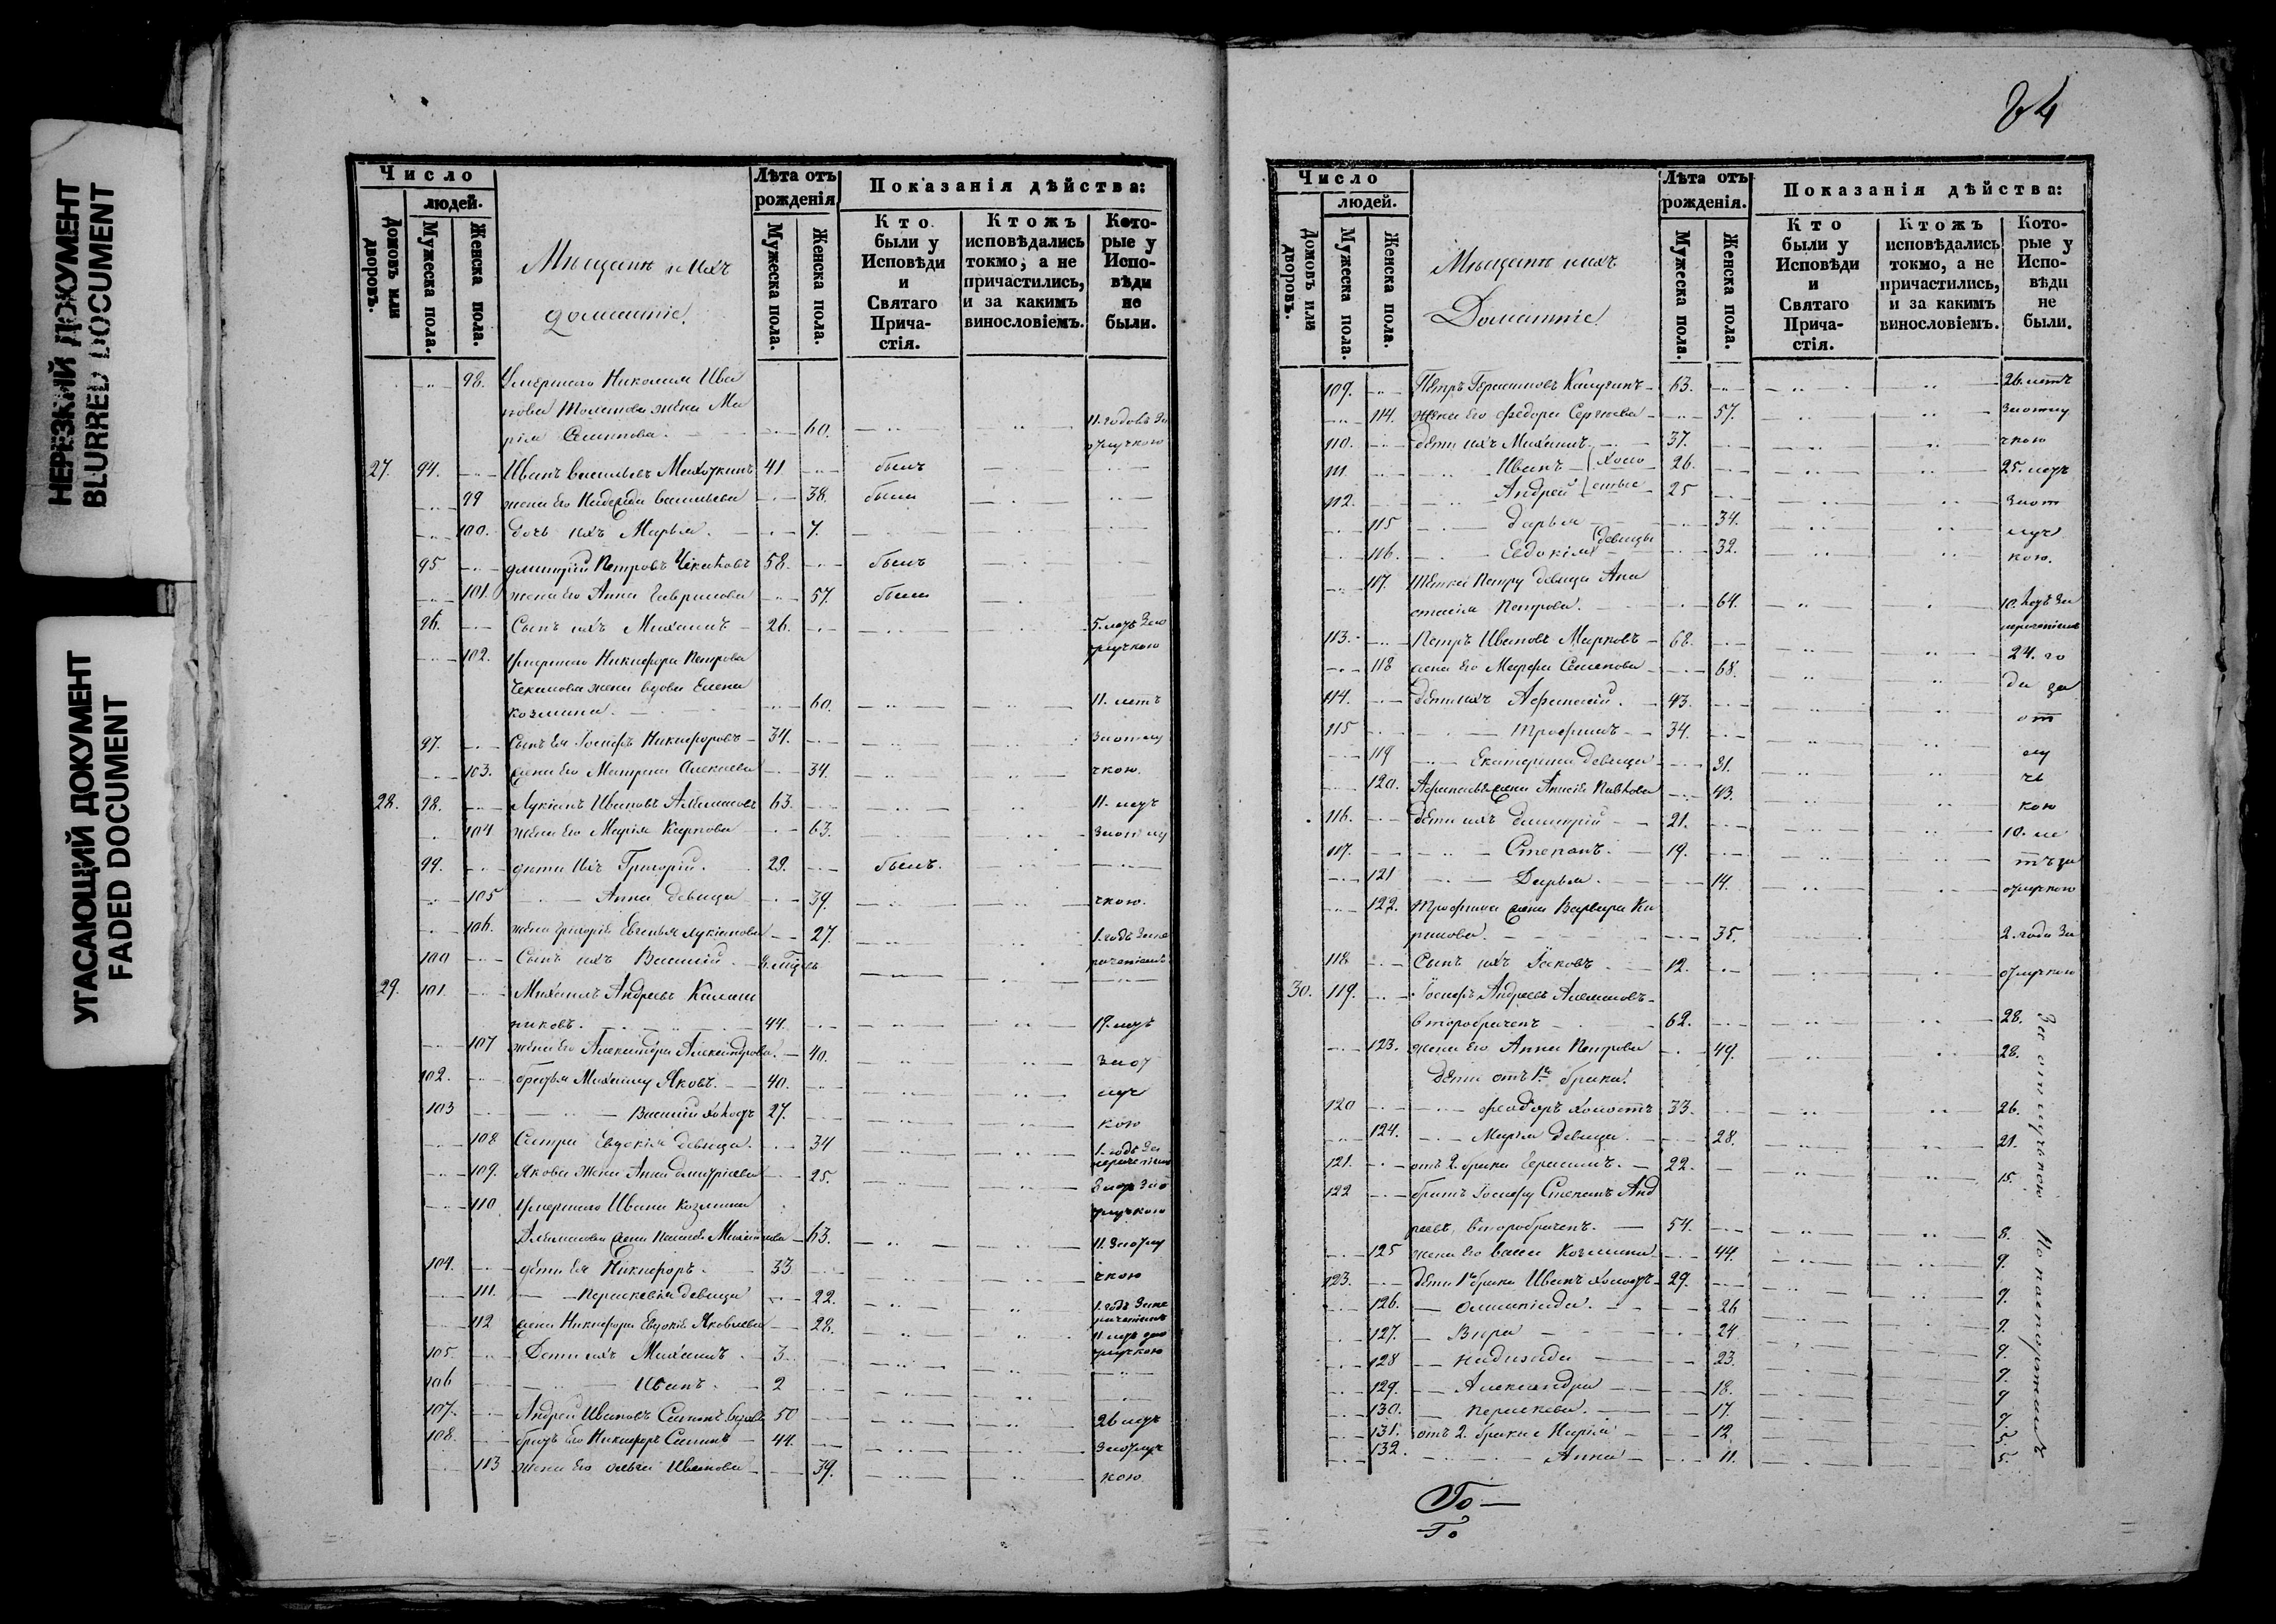 НЕРЕЗКИЙ ДОКУМЕНТ
BLURRED DOCUMENT
УГАСАЮЩИЙ ДОКУМЕНТ
FADED DOCUMENT
Число
людей.
Домовъ или дворовъ.
Мужеска пола.
Женска пола.
Мѣщане и ихъ
домашніе.
Лѣта отъ
рожденія
Мужеска пола.
Женска пола.
Показанія дѣйства:
Кто
были у
Исповѣди
и
Святаго
Прича-
стія.
Ктожъ
исповѣдались
токмо, а не
причастились,
и за какимъ
винословіемъ.
Кото-
рые у
Испо-
вѣди
не
были.
98. Умершаго Николая Ива
нова жена Ма
рія 60. 11. годовъ за
отлучкою
27. 94. Иванъ Васильевъ 41 былъ
99 жена его Надежда Васильева 38. была
100. дочь ихъ Марья. 7.
95 Димитрій Петровъ Чекановъ 58. былъ
101. жена его Анна Гаврилова 57. была
96. Сынъ ихъ Михаилъ 26. 5. лѣтъ за о
тлучкою
102. Умершаго Никифора Петрова
Чеканова жена вдова Елена
Козмина. 60. 11. летъ
97. Сынъ ея Іосифъ Никифоровъ 34. за отлу
103. жена его Матрена Алексеева 34. чкою.
28. 98. Лукіанъ Ивановъ 63. 11. летъ
104. жена его Марія Карпова 63. за отлу
99. дети ихъ Григорій. 29. былъ.
105 Анна девица 39. чкою.
106. жена Григорія Евгенья Лукіанова 27. 1. годъ за не
100 Сынъ ихъ Василій. рачениемъ
29. 101 Михаилъ Андреевъ Калаш
никовъ. 44. 19. летъ
107 жена его Александра Александрова. 40. за от
102. братья Михаилу Яковъ. 40. луч
103 Василій холостъ 27. кою
108 Сестра Евдокія девица. 34 1. годъ за
нерачениемъ
109. Якова жена Анна Димитріева 25. за о
тлучкою
110 Умершаго Ивана Козмина
жена 63. 11. за отлу
104. дѣти ея Никифоръ. 33 чкою
111. Параскевія девица 22. 1. годъ за не
рачениемъ
112 жена Никифора Евдокія Яковлева 28. 11 летъ за о
тлучкою
105. Дети ихъ Михаилъ. 3.
106 Иванъ. 2
107. Андрей Ивановъ вдовъ 50 26 летъ
108. братъ его Никифоръ 44. за отлуч
113 жена его Ольга Иванова 39. кою.
84
Число
людей.
Домовъ или дворовъ.
Мужеска пола.
Женска пола.
Мѣщане и ихъ
Домашніе
Лѣта отъ
рожденія.
Мужеска пола.
Женска пола.
Показанія дѣйства:
Кто
были у
Исповѣди
и
Святаго
Прича-
стія.
Ктожъ
исповѣдались
токмо, а не
причастились,
и за какимъ
винословіемъ.
Кото-
рые у
Испо-
вѣди
не
были.
109. Петръ Герасимовъ 63. 26. летъ
114. жена его Федора Сергѣева 57. за отлу
110. дѣти ихъ Михаилъ. 37. чкою
111. Иванъ холо 26. 25. летъ
112. Андрей стые 25 за от
115 Дарья 34. луч
116. Евдокія девицы 32. кою.
117. тетка Петру девица Ана
стасія Петрова. 64. 10. летъ за
нерачениемъ
113. Петръ Ивановъ Марковъ 68. 24. го
118 жена его Марфа Семенова 68. да за
114. дѣти ихъ Афанасій. 43. от
115 Трофимъ 34. лу
119 Екатерина девица 31. ч
120. Афанасья жена Анисія Павлова 43. кою
116. дѣти ихъ Димитрій 21. 10. ле
117. Степанъ. 19. тъ за
121 Дарья. 14. отлучкою
122. Трофима жена Варвара Ки
рилова. 35. 2. года за
118 Сынъ ихъ Іаковъ. 12. отлучкою
30. 119. Іосифъ Андреевъ
второбраченъ 62. 28.
123. жена его Анна Петрова 49. 28.
дѣти отъ 1го брака.
120 Феодоръ холостъ 33. 26.
124. Марія девица. 28. 21.
121. отъ 2. брака Герасимъ. 22. 15.
122 братъ Іосифу Степанъ Анд
реевъ второбраченъ. 54. 8.
125 жена его Васса Козмина 44. 9.
123. дѣти 1го брака Иванъ холостъ 29. 9.
126. Олимпіада. 26 9.
127. Вѣра 24 9.
128 Надежда 23. 9.
129. Александра 18. 9
130. Параскева. 17. 9.
131. отъ 2. брака Марія 12. 5.
132. Анна 11. 5.
За отлучкою по паспортамъ